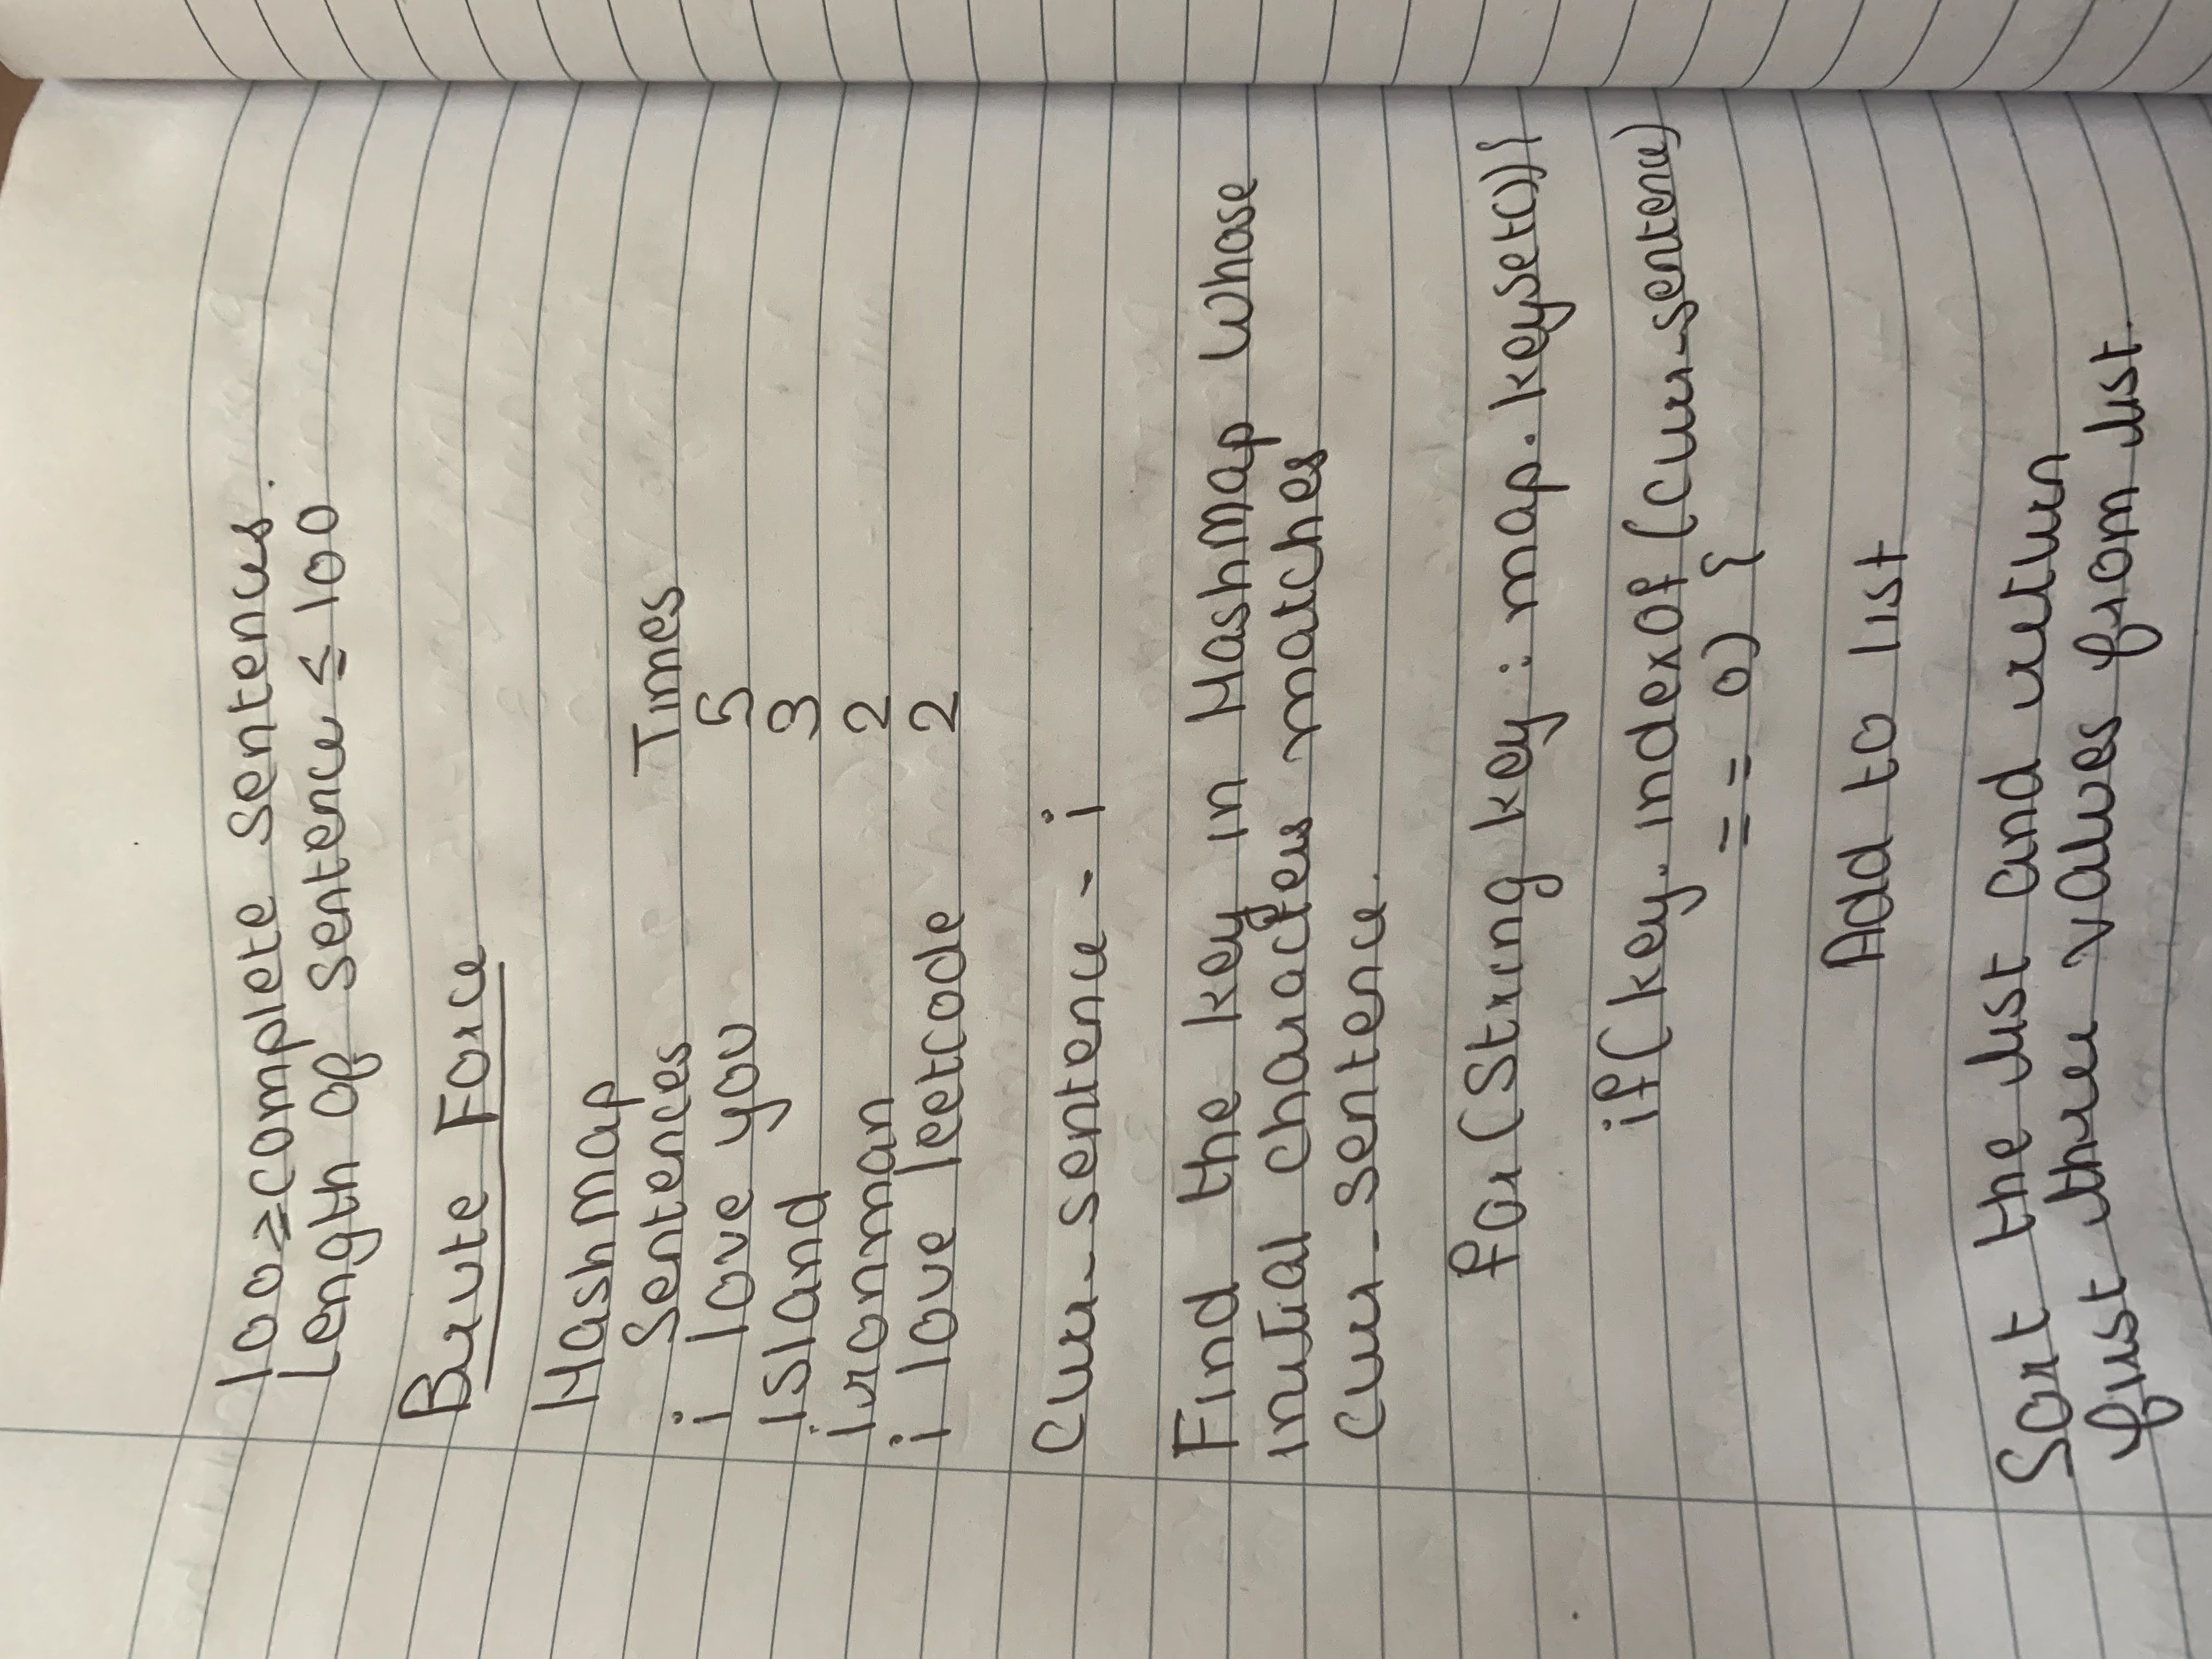 100≥complete sentences.
Length of sentence ≤ 100
Brute Force
HashMap
Sentences Times
i love you 5
island 3
ironman 2
i love leetcode 2
Curr_sentence - i
Find the key in HashMap whose
initial characters matches
curr_sentence.
for(String key : map.keyset()){
if(key.indexOf(curr_sentence)
== 0) {
Add to list
Sort the list and return
first three values from list.